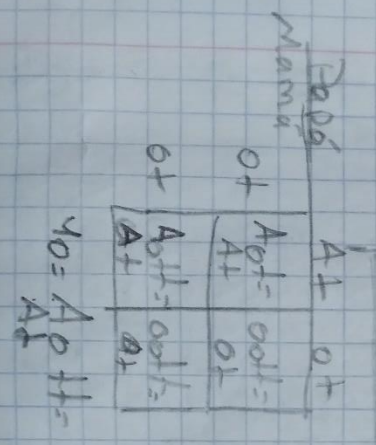 Papá
Mamá
A+ o+
o+ Ao++= oo++=
A+ o+
o+ Ao++= oo++=
A+ o+
Yo= Ao++=
A+